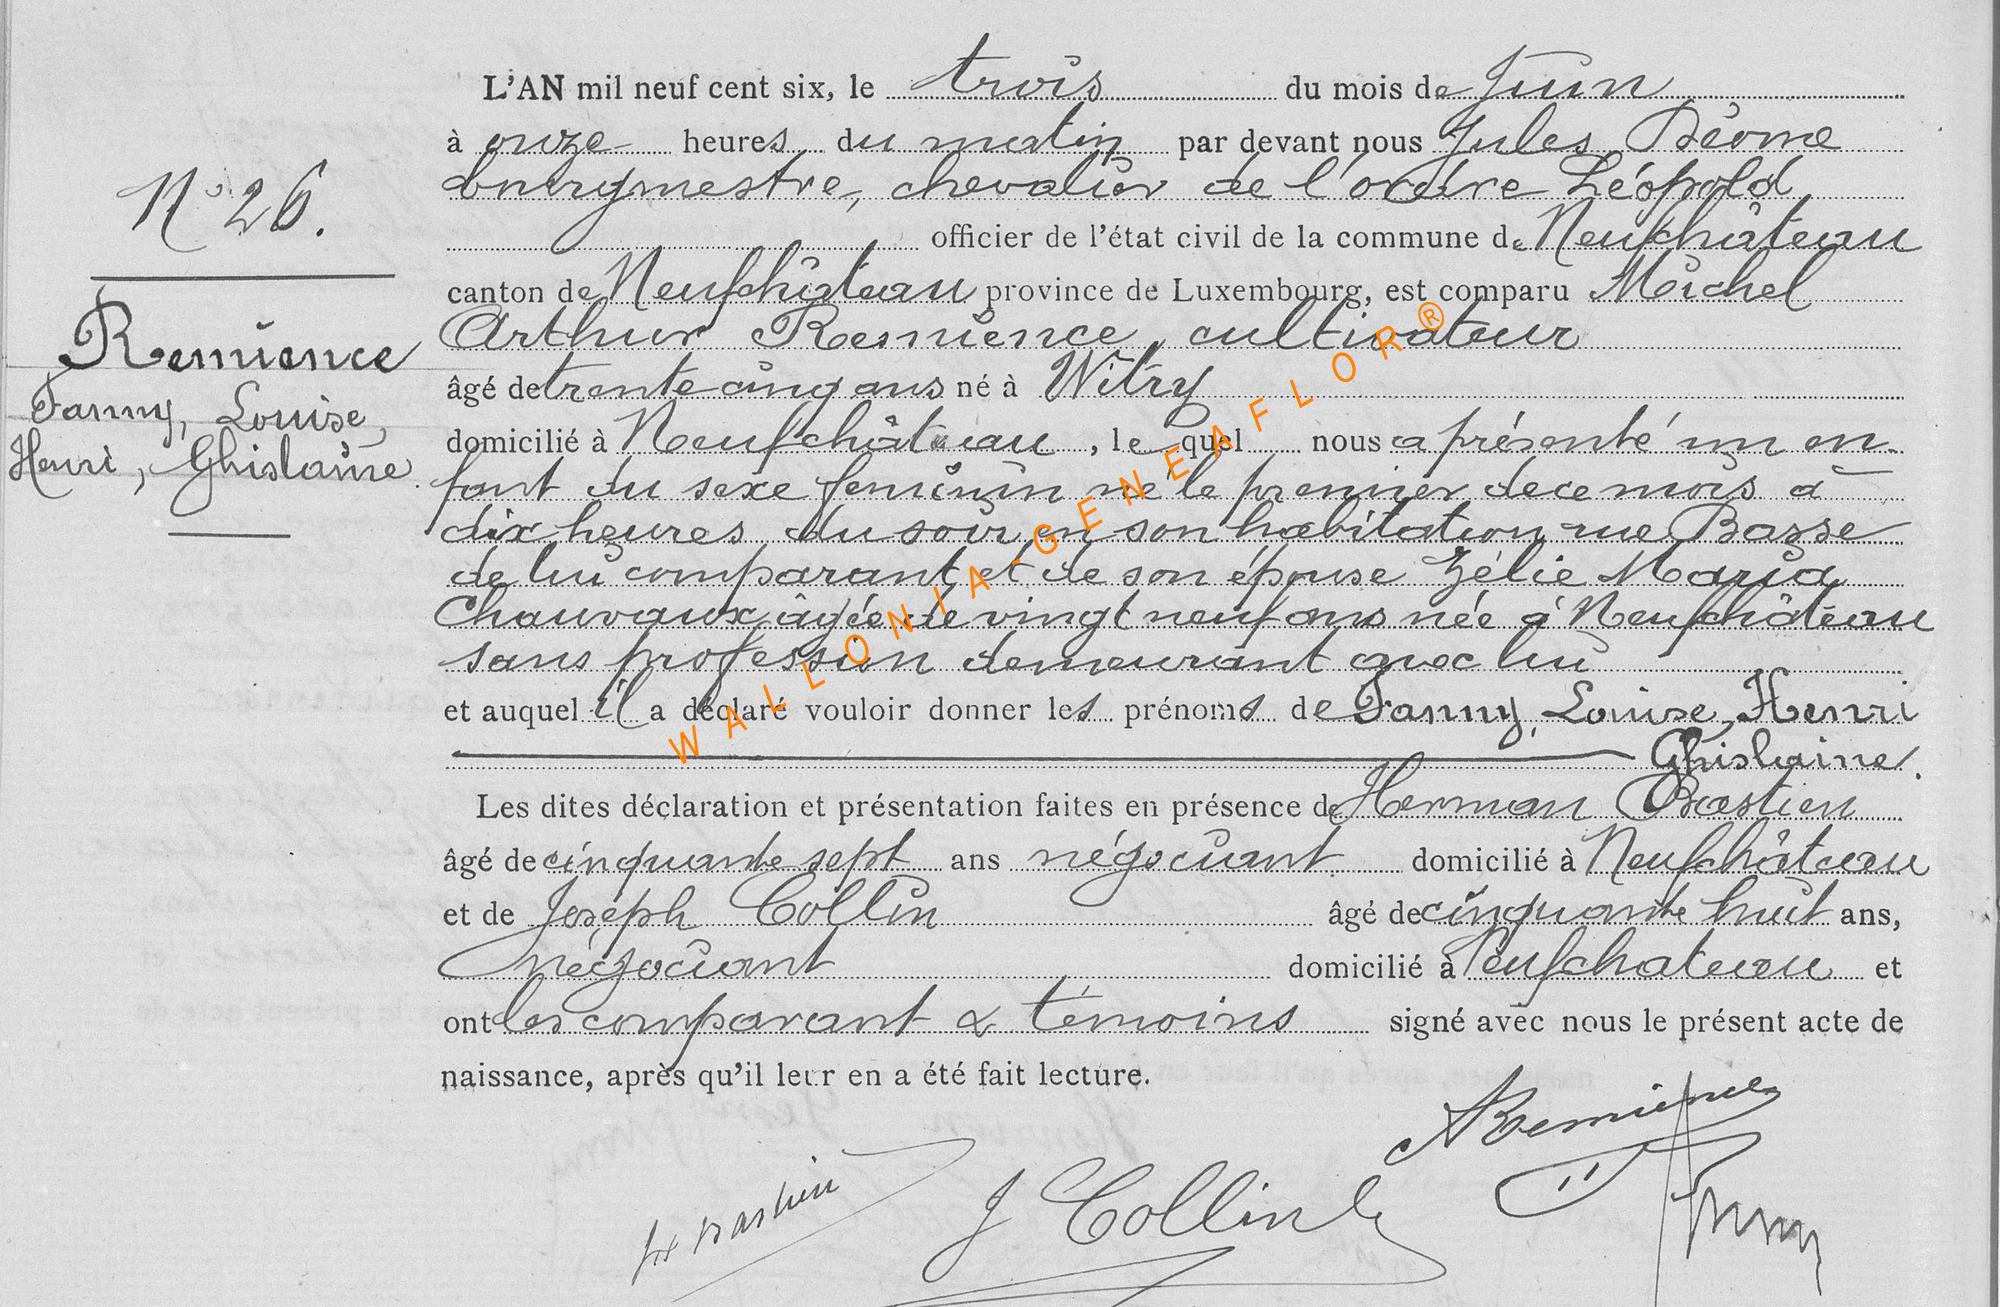 N° 26.
Remience
Fanny, Louise,
Henri, Ghislaine.
L'AN mil neuf cent six, le trois du mois de Juin
à onze heures du matin par devant nous Jules
bourgmestre, chevalier de l'ordre Léopold
officier de l'état civil de la commune de Neufchâteau
canton de Neufchâteau province de Luxembourg, est comparu Michel
Arthur Remience, cultivateur
âgé de trente cinq ans né à Witry
domicilié à Neufchâteau, lequel nous a présenté un en-
fant du sexe feminin né le premier de ce mois à
dix heures du soir en son habitation rue Basse
de lui comparant et de son épouse Zélie Maria
Chauvaux âgée de vingt neuf ans née à Neufchâteau
sans profession demeurant avec lui
et auquel il a déclaré vouloir donner les prénoms de Fanny, Louise, Henri
Ghislaine.
Les dites déclaration et présentation faites en présence de Herman Bastien
âgé de cinquante sept ans négociant domicilié à Neufchâteau
et de Joseph Collin âgé de cinquante huit ans,
négociant domicilié à Neufchateau et
ont les comparant & témoins signé avec nous le présent acte de
naissance, après qu'il leur en a été fait lecture.
ARemience
Bastien
J Collin
WALLONIA-GENEAFLOR®